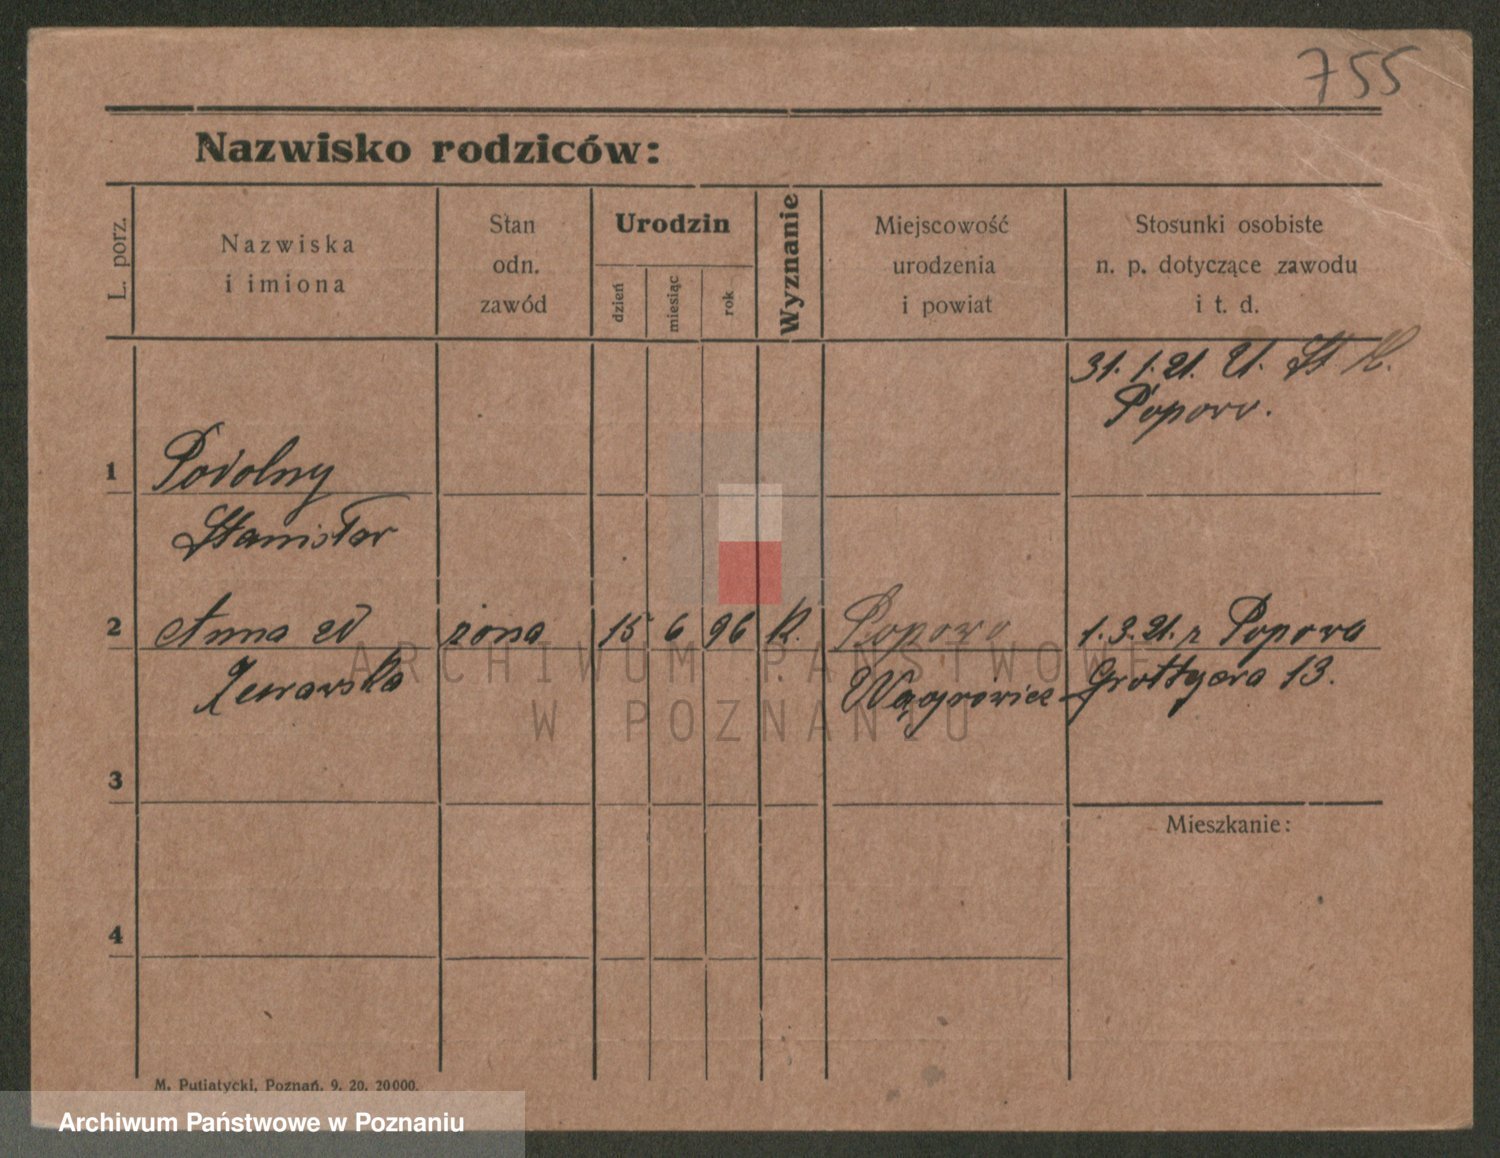 755
Nazwisko rodziców:
L. porz.
Nazwiska
i imiona
Stan
odn.
zawód
Urodzin
dzień
miesiąc
rok
Wyznanie
Miejscowość
urodzenia
i powiat
Stosunki osobiste
n. p. dotyczące zawodu
i t. d.
31. 1. 21. U. St
Popowo.
1
Podolny
Stanisław
2
Anna
żona
15 6 96 K.
Popowo
1. 3. 21. z Popowa
Żurawska
Wągrowiec
Grottgera 13.
3
Mieszkanie:
4
M. Putiatycki, Poznań. 9. 20. 20000.
ARCHIWUM PAŃSTWOWE
W POZNANIU
Archiwum Państwowe w Poznaniu